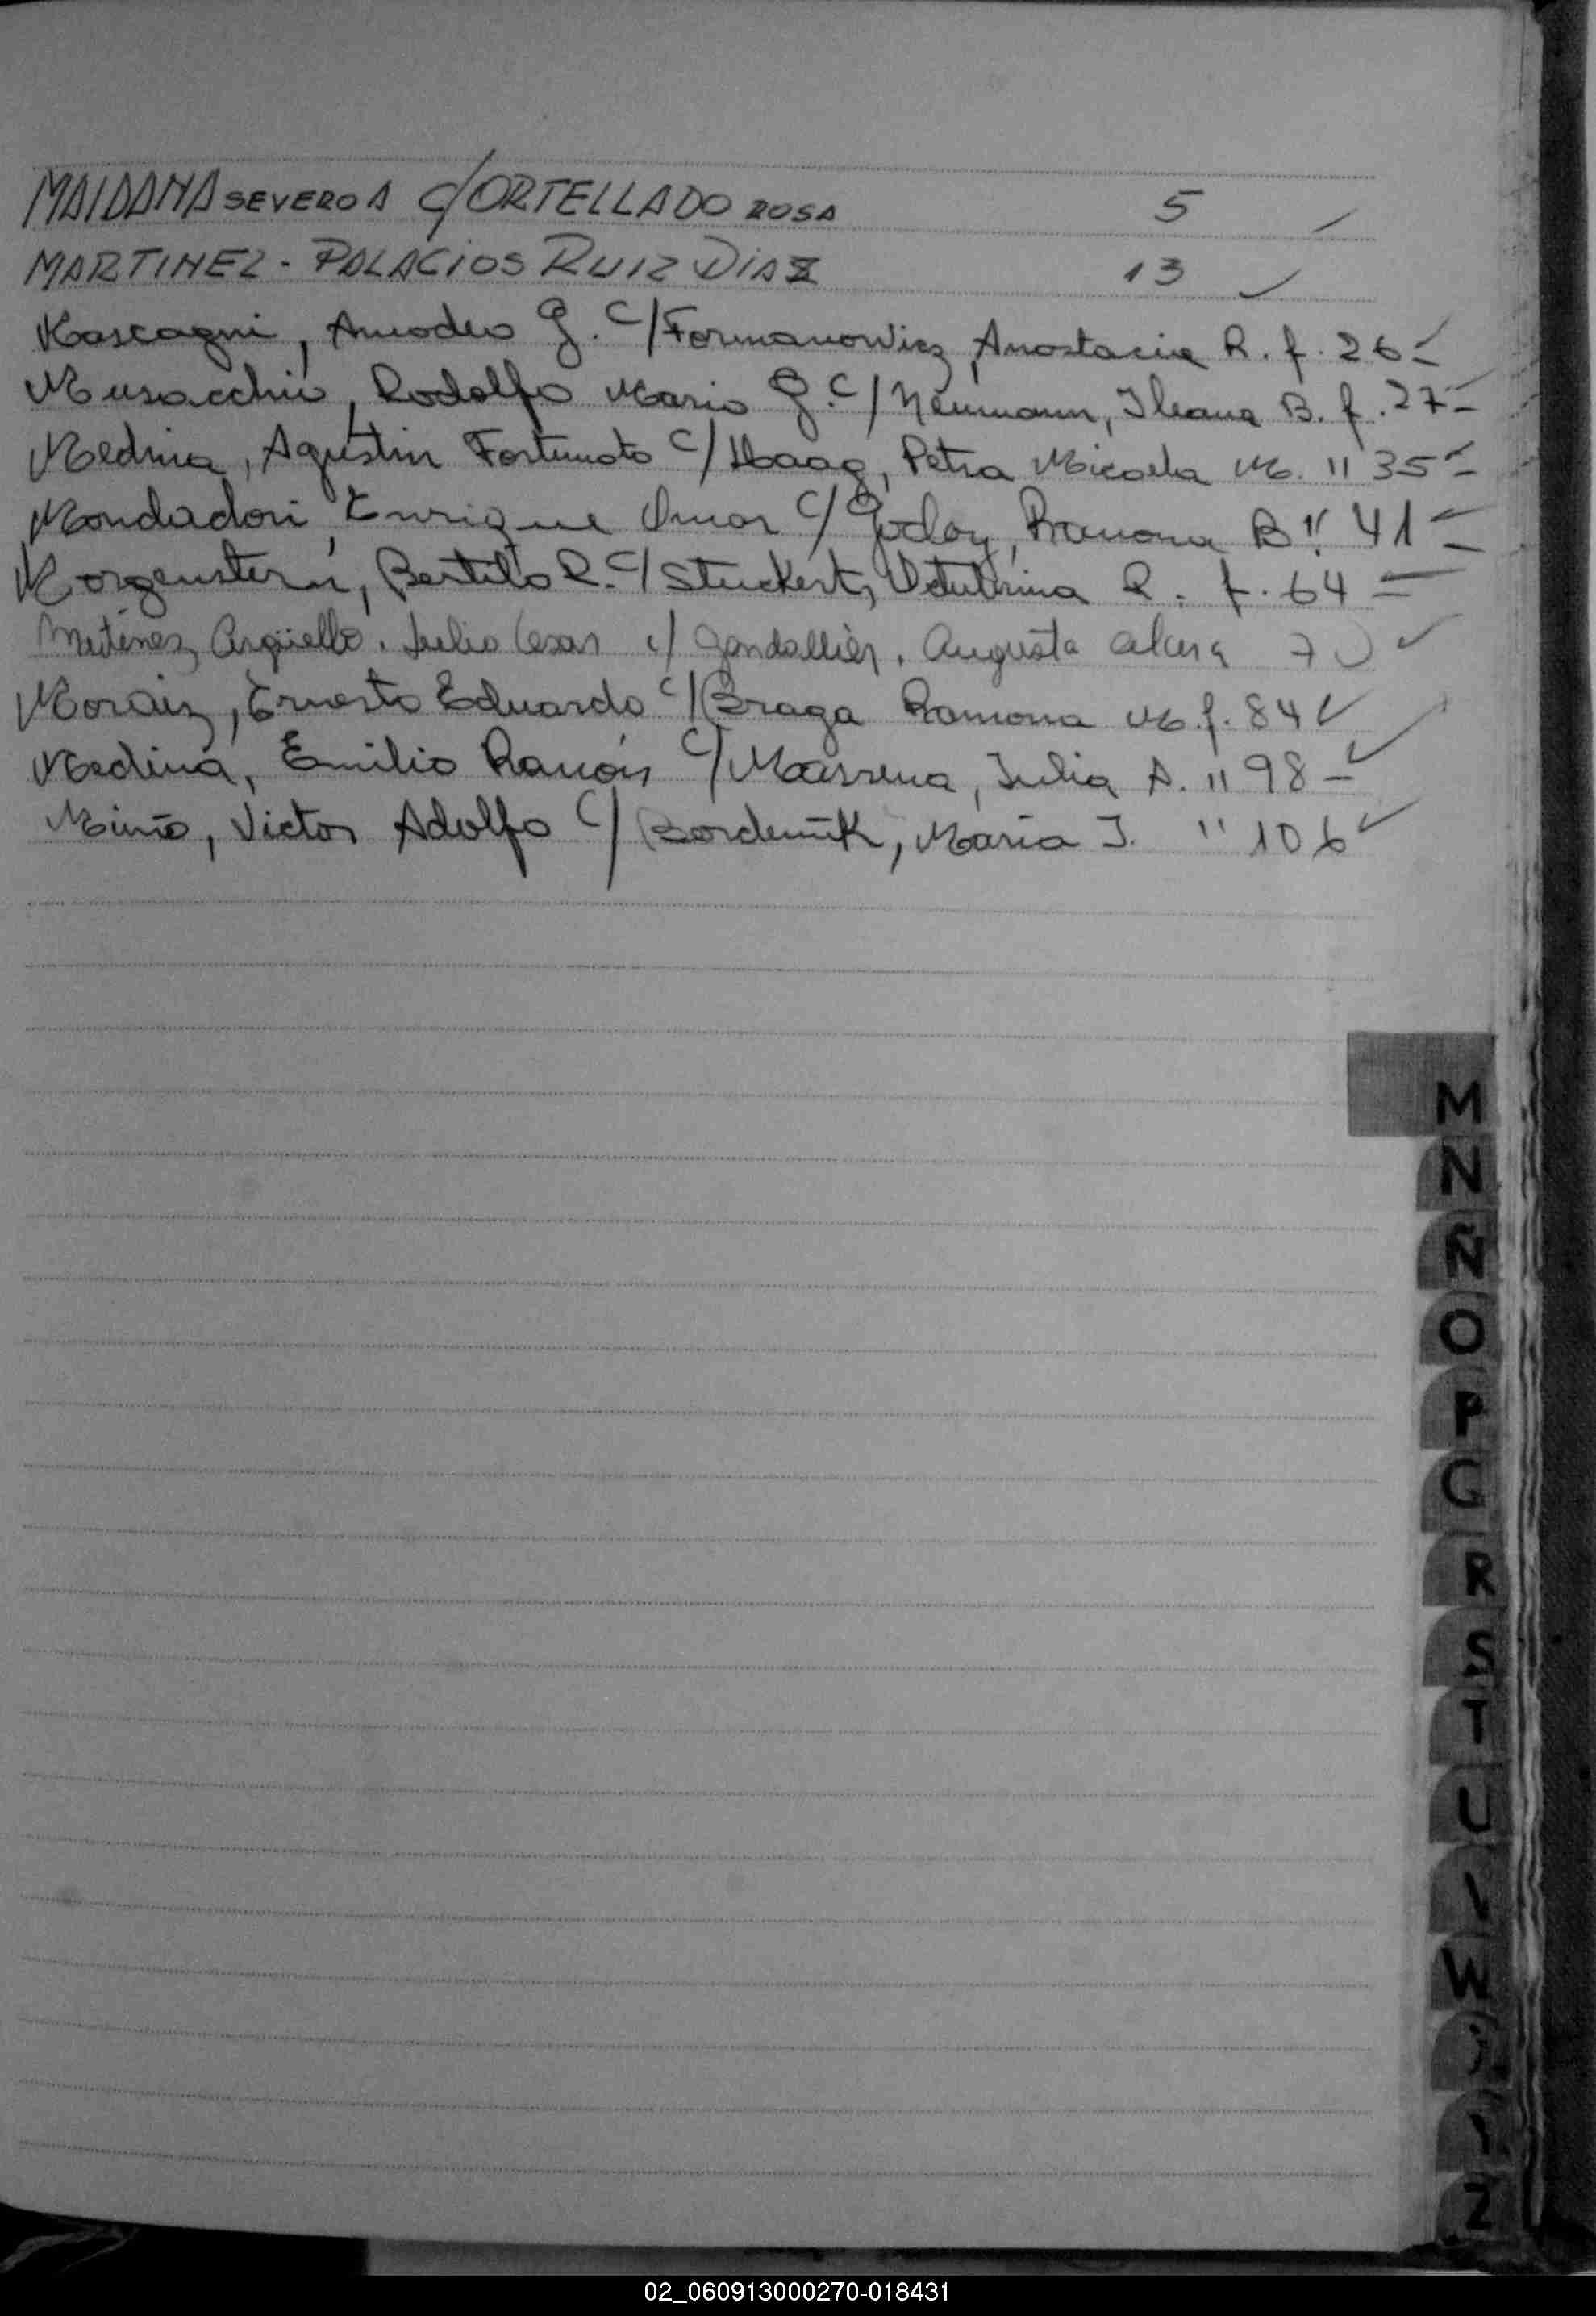 MAIDANA SEVERO A C/ORTELLADO ROSA 5
MARTINEZ - PALACIOS RUIZ DIAZ 13
Mascagni, Amadeo J. C/Formanowicz, Anastacia R. f. 26
Musacchio, Rodolfo Mario J. C/Neumann, Ileana B. f. 27
Medina, Agustin Fortunato C/Haag, Petra Micaela M. " 35
Mondadori, Enrique Omar C/Godoy, Ramona B. " 41
Morgenstern, Bertilo R. C/Stuckert, R. f. 64
Martinez Argüello. Julio Cesar c/ Augusta 70
Moraiz, Ernesto Eduardo C/Braga Ramona M. f. 84
Medina, Emilio Ramón C/Massena, Julia A. " 98
Miño, Victor Adolfo C/Bordenik, María J. " 106
M
N
Ñ
O
P
R
S
T
U
W
Z
02_060913000270-018431